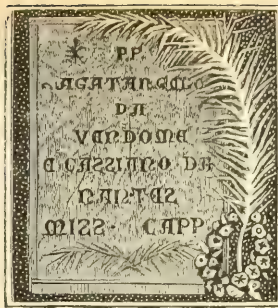 PP
AGATANGELO
DA
VENDOME
E CASSIANO DA
NANTES
MISS. CAPP